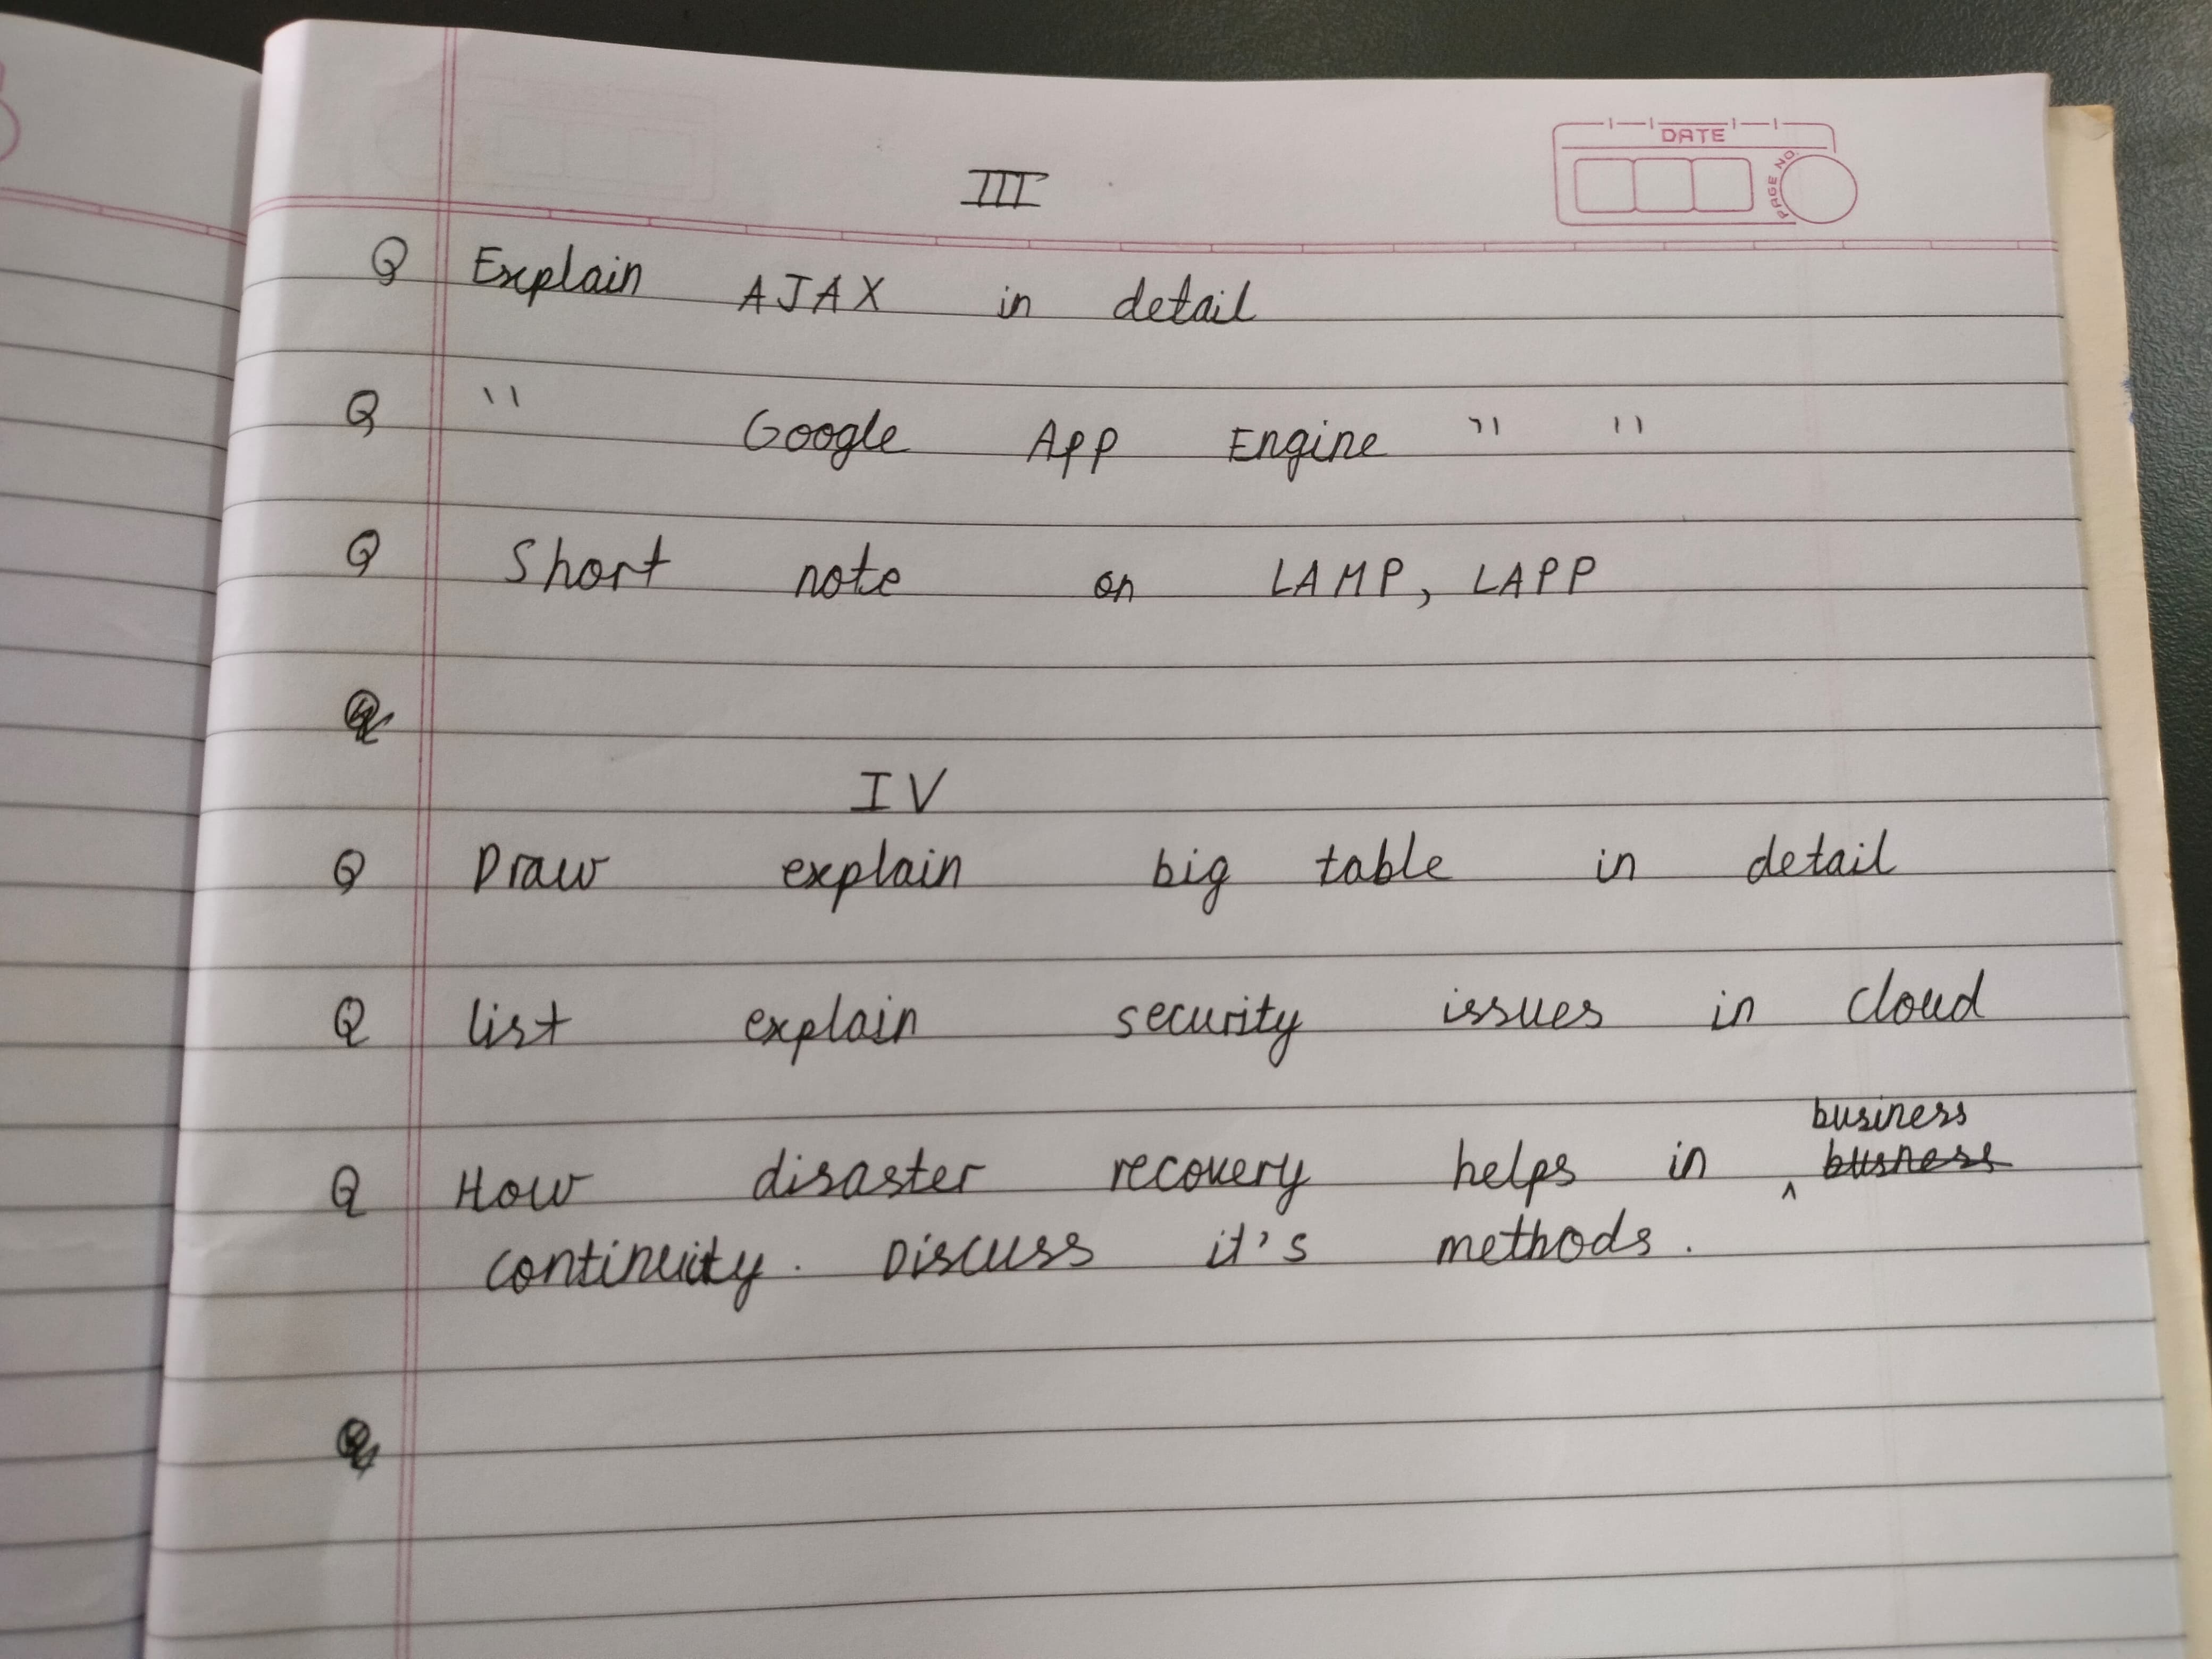 DATE
PAGE NO.
III
Q Explain AJAX in detail
Q " Google App Engine " "
Q Short note on LAMP, LAPP
Q
IV
Q Draw explain big table in detail
Q list explain security issues in cloud
business
Q How disaster recovery helps in ^ busness
continuity. Discuss it's methods.
Q